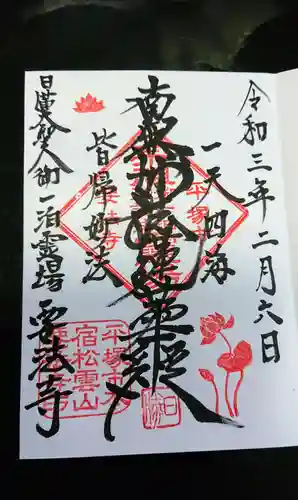 令和三年二月六日
一天四海
南無妙法蓮華経
皆帰妙法
日蓮大聖人御一泊霊場
要法寺
平塚市
宿松雲山
要法寺